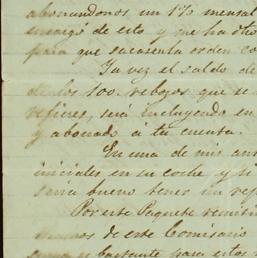 abonandonos un 1% mensual
encargó de esto y me ha
para que sacasenta orden
Ya vez el saldo de
de los 100. rebozos que se
refieres, será incluyendo en
y abonado a tu cuenta.
En una de mis
iniciales en su coche y si
seria bueno tener un
Por este Paquete
de este Comisario
bastante para estos